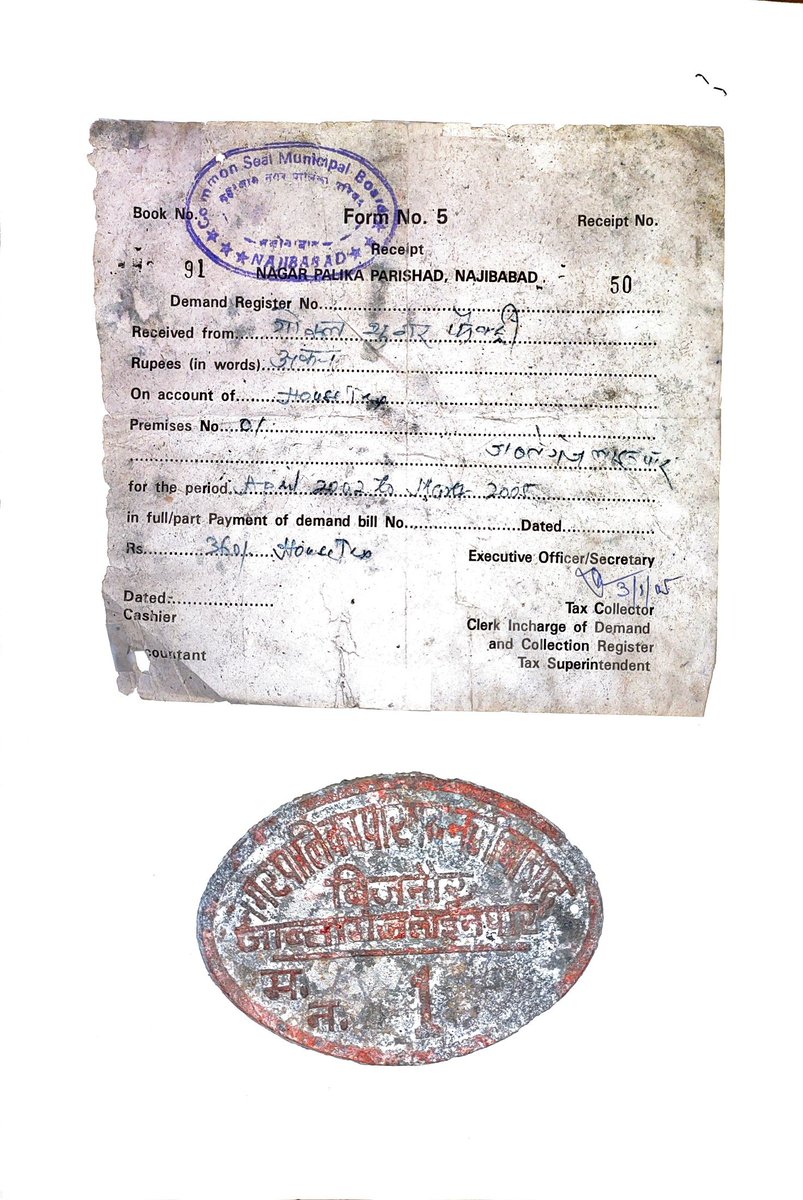 Common Seal Municipal Board
नगर पालिका परिषद
NAJIBABAD
Book No. Form No. 5 Receipt No.
Receipt
91 NAGAR PALIKA PARISHAD, NAJIBABAD 50
Demand Register No.
Received from
Rupees (in words)
On account of House Tax
Premises No. 01
for the period April 2002 to March 2005
in full/part Payment of demand bill No. Dated
Rs. 360/ House Tax Executive Officer/Secretary
3/1/05
Dated:- Tax Collector
Cashier Clerk Incharge of Demand
and Collection Register
Accountant Tax Superintendent
नगरपालिका
बिजनौर
म.
न. 1